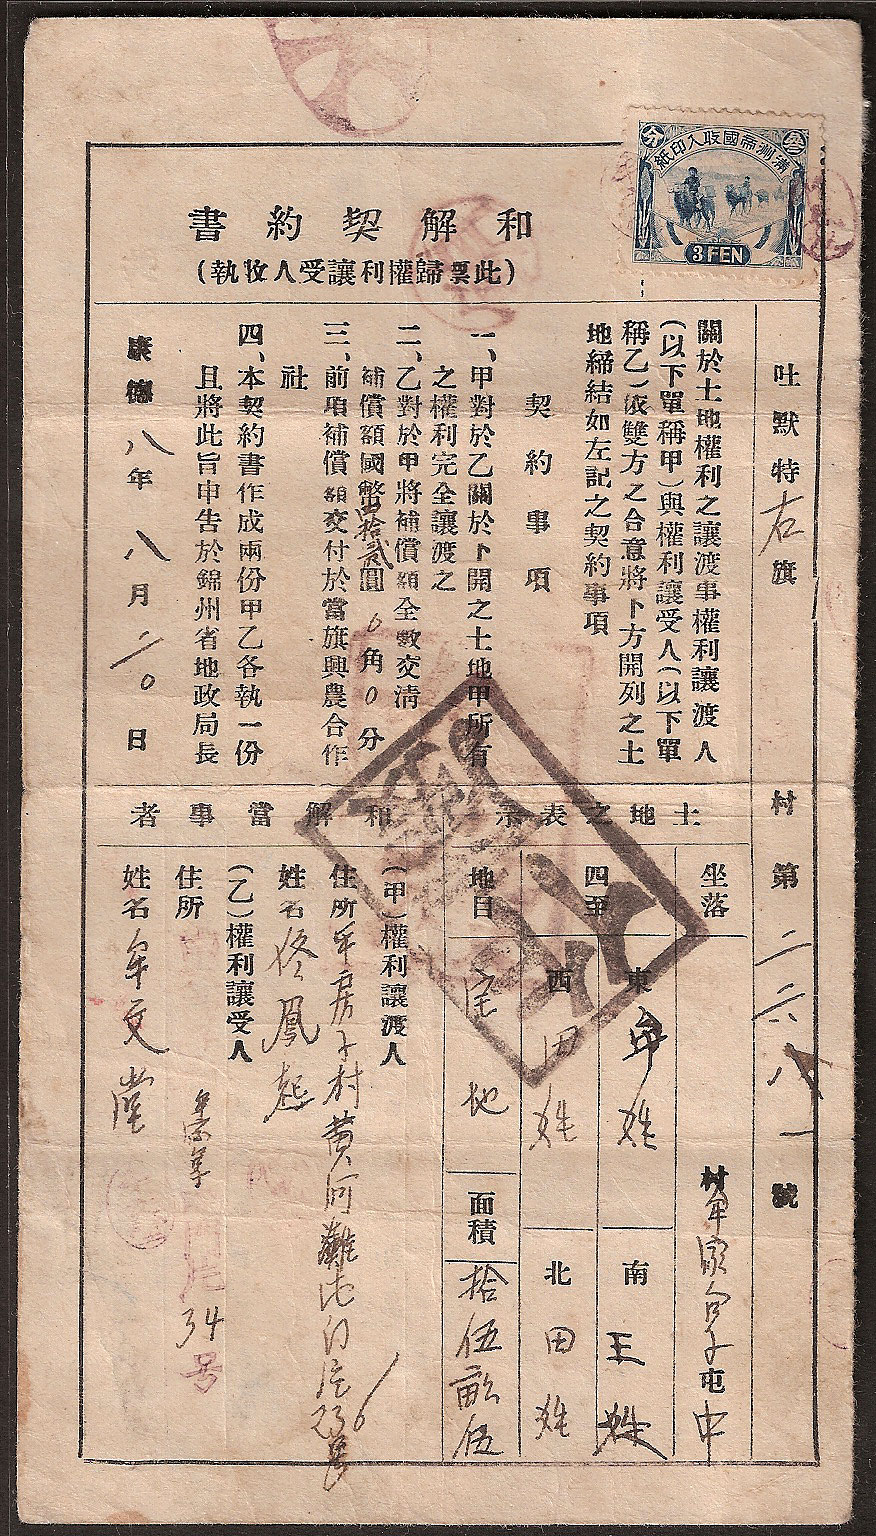 滿洲帝國收入印紙
叁
分
3 FEN
和解契約書
(此票歸權利讓受人收執)
吐默特右旗
村第二六八一號
關於土地權利之讓渡事權利讓渡人
(以下單稱甲)與權利讓受人(以下單
稱乙)依雙方之合意將下方開列之土
地締結如左記之契約事項
契約事項
一、甲對於乙關於下開之土地甲所有
之權利完全讓渡之
二、乙對於甲將補償額全數交淸
補償額國幣四拾貳圓0角0分
三、前項補償額交付於當旗興農合作
社
四、本契約書作成兩份甲乙各執一份
且將此旨申告於錦州省地政局長
康德八年八月二0日
土地之表示
坐落
村牟家窩子屯中
四至
東牟姓
南王姓
西田姓
北田姓
地目
地
面積
拾伍畝伍
和解當事者
(甲)權利讓渡人
住所牟房子村黃河灘屯門牌236號
姓名佟鳳起
(乙)權利讓受人
住所
34号
姓名牟文堂